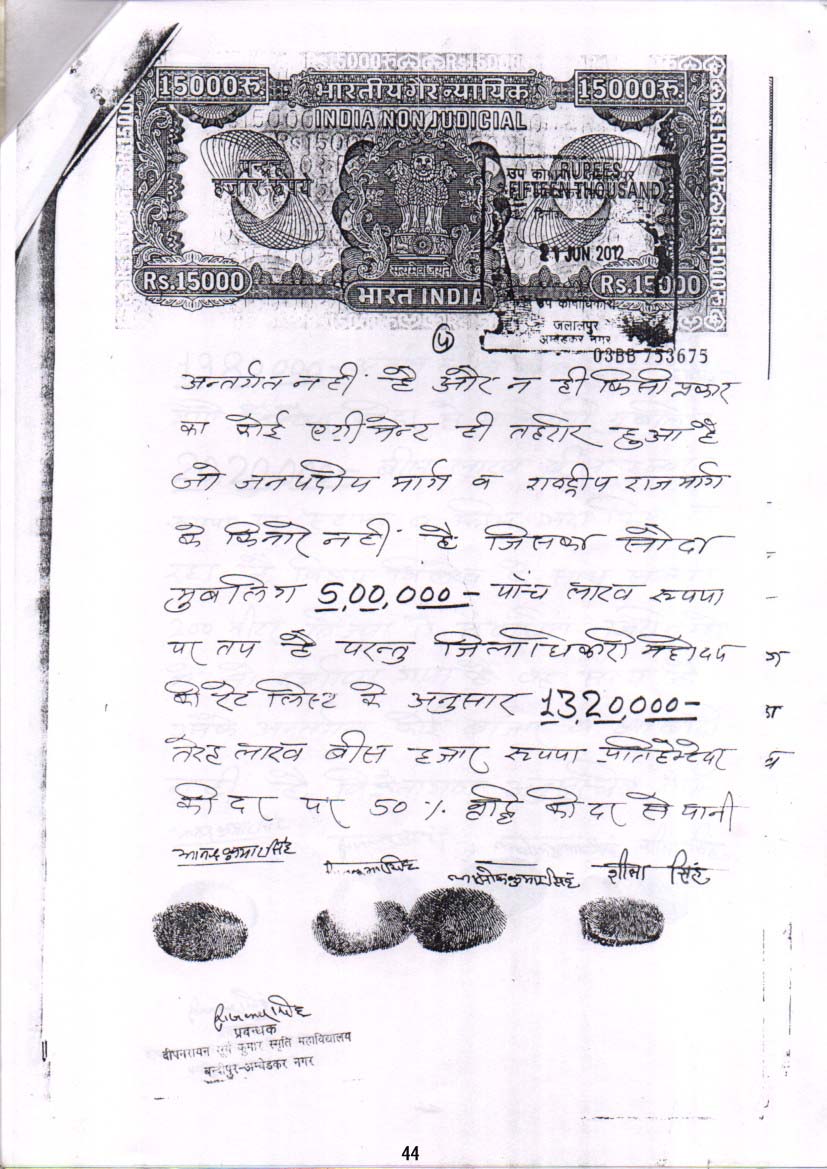 Rs.15000
15000रु.
भारतीय गैर न्यायिक
15000रु.
INDIA NON JUDICIAL
पन्द्रह
हजार रुपये
RUPEES
FIFTEEN THOUSAND
21 JUN 2012
सत्यमेव जयते
Rs.15000
भारत INDIA
Rs.15000
उप कोषाधिकारी
जलालपुर
अम्बेडकर नगर
03BB 753675
अन्तर्गत नहीं है और न ही किसी प्रकार
का कोई एग्रीमेन्ट ही तहरीर हुआ है
जो जनपदीय मार्ग व राष्ट्रीय राजमार्ग
के किनारे नहीं है जिसका सौदा
मुबलिग 5,00,000- पाँच लाख रूपया
पर तय है परन्तु जिलाधिकारी महोदय
के रेट लिस्ट के अनुसार 13,20,000-
तेरह लाख बीस हजार रूपया प्रति हेक्टेयर
की दर पर 50% वृद्धि की दर से यानी
शीला सिंह
प्रबन्धक
दीपनरायन सूर्य कुमार स्मृति महाविद्यालय
बन्दीपुर-अम्बेडकर नगर
44